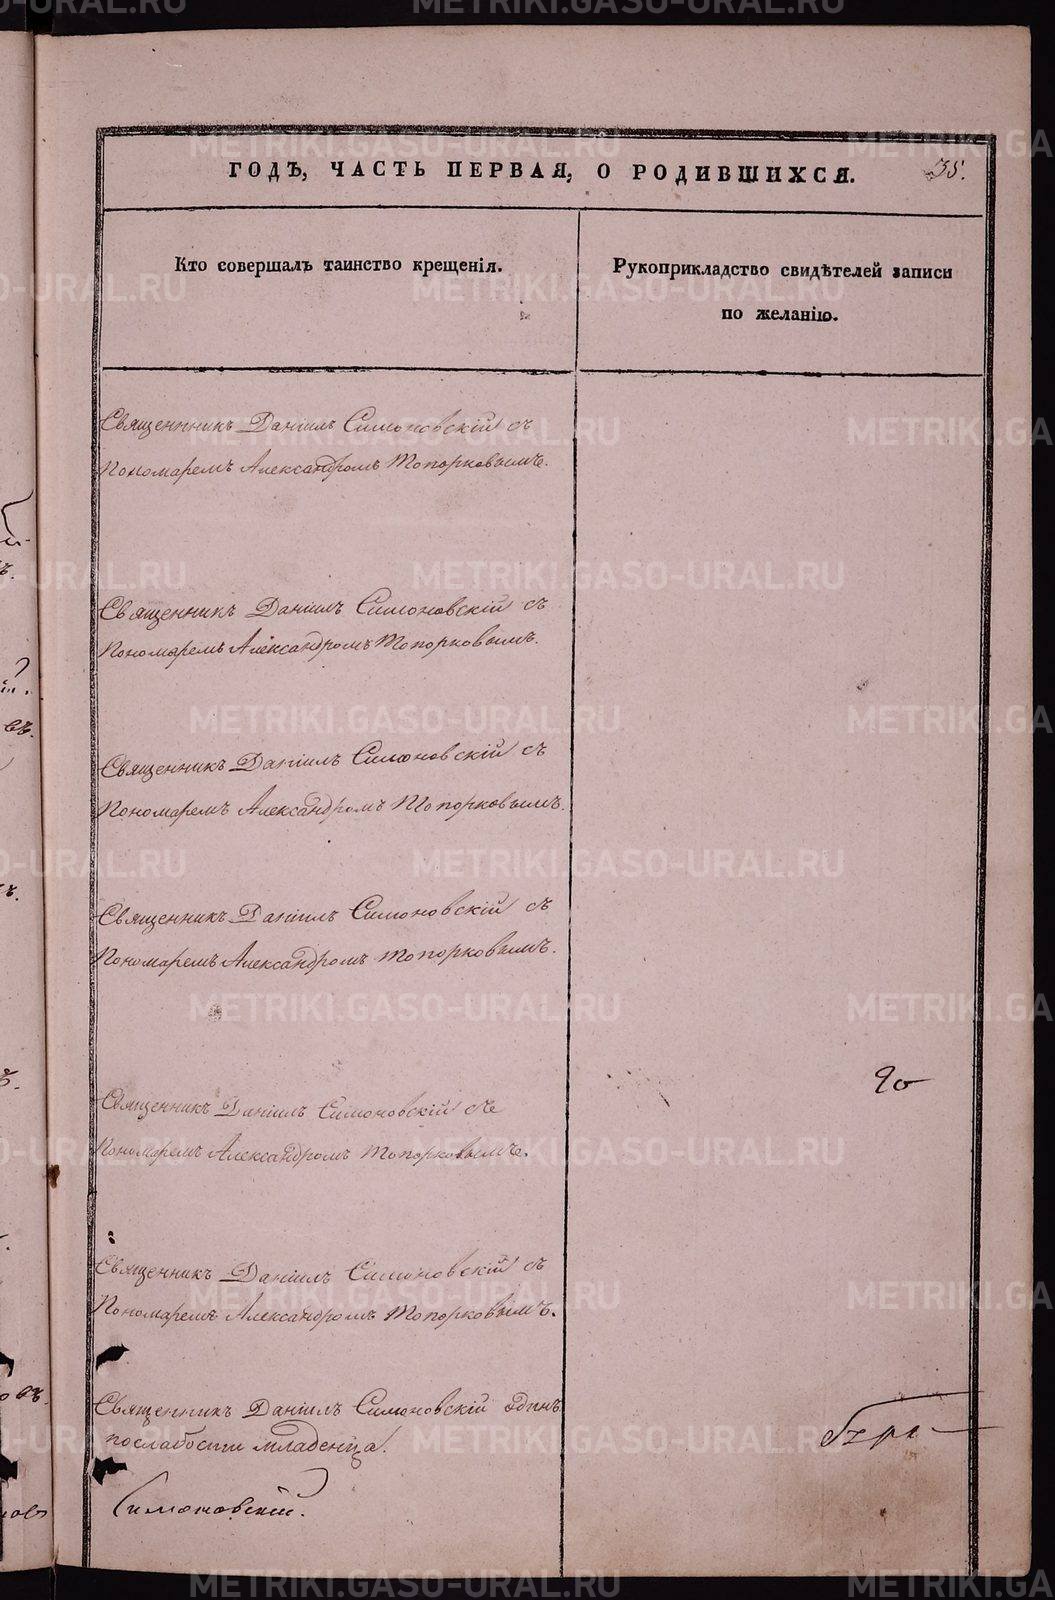 ГОДЪ, ЧАСТЬ ПЕРВАЯ, О РОДИВШИХСЯ.
35.
Кто совершалъ таинство крещенія.
Рукоприкладство свидѣтелей записи
по желанію.
Священникъ Даніилъ Симоновскій съ
Пономаремъ Александромъ Топорковымъ.
Священникъ Даніилъ Симоновскій съ
Пономаремъ Александромъ Топорковымъ.
Священникъ Даніилъ Симоновскій съ
Пономаремъ Александромъ Топорковымъ.
Священникъ Даніилъ Симоновскій съ
Пономаремъ Александромъ Топорковымъ.
Священникъ Даніилъ Симоновскій съ
Пономаремъ Александромъ Топорковымъ.
Священникъ Даніилъ Симоновскій съ
Пономаремъ Александромъ Топорковымъ.
Священникъ Даніилъ Симоновскій одинъ
по слабости младенца.
Симоновскій.
METRIKI.GASO-URAL.RU